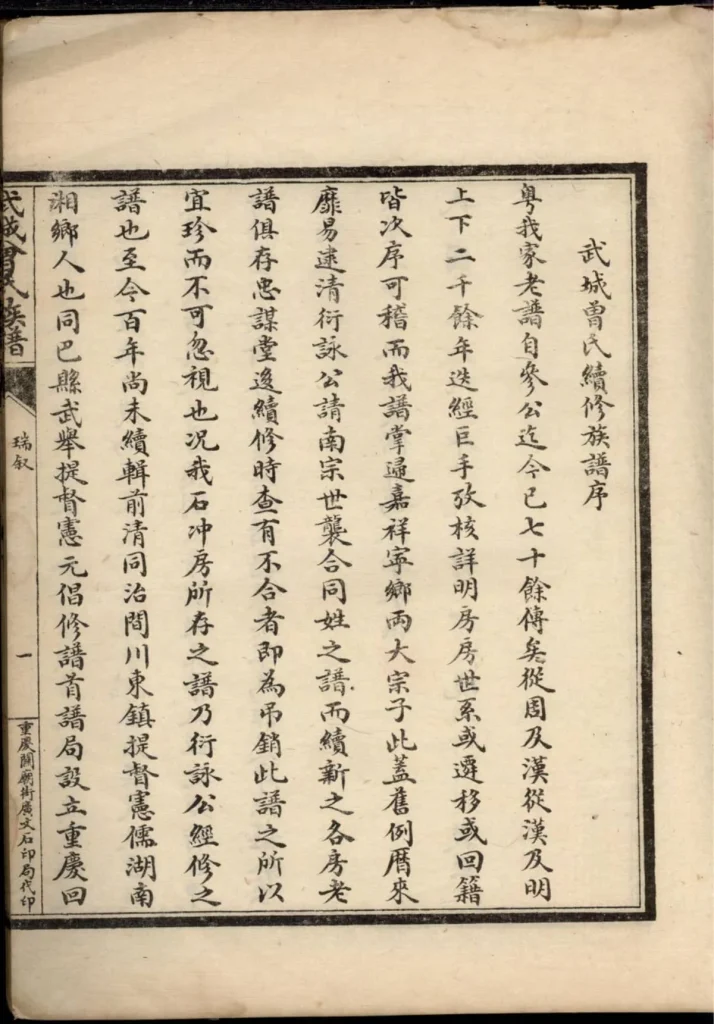 武城曾氏續修族譜序
粤我家老譜自參公迄今已七十餘傳矣從周及漢從漢及明
上下二千餘年迭經巨手攷核詳明房房世系或遷移或回籍
皆次序可稽而我譜掌歸嘉祥寧鄉兩大宗子此蓋舊例曆來
靡易逮清衍詠公請南宗世襲合同姓之譜而續新之各房老
譜俱存忠謀堂後續修時查有不合者即為吊銷此譜之所以
宜珍而不可忽視也况我石冲房所存之譜乃衍詠公經修之
譜也至今百年尚未續輯前清同治間川東鎮提督憲儒湖南
湘鄉人也同巴縣武舉提督憲元倡修譜首譜局設立重慶回
武城曾氏族譜
瑞叙
一
重慶關廟街廣文石印局代印